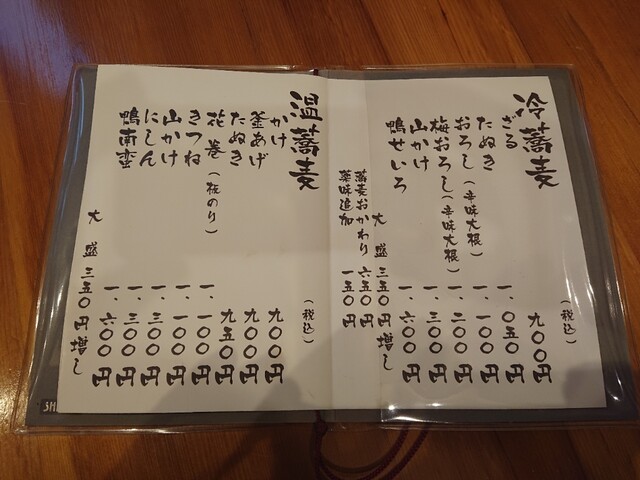 冷蕎麦 (税込)
ざる 九〇〇円
たぬき 一、〇五〇円
おろし(辛味大根) 一、一〇〇円
梅おろし(辛味大根) 一、二〇〇円
山かけ 一、三〇〇円
鴨せいろ 一、六〇〇円
大盛 三五〇円増し
蕎麦おかわり 六五〇円
薬味追加 一五〇円
温蕎麦 (税込)
かけ 九〇〇円
釜あげ 九〇〇円
たぬき 九五〇円
花巻(板のり) 一、一〇〇円
きつね 一、一〇〇円
山かけ 一、三〇〇円
にしん 一、三〇〇円
鴨南蛮 一、六〇〇円
大盛 三五〇円増し